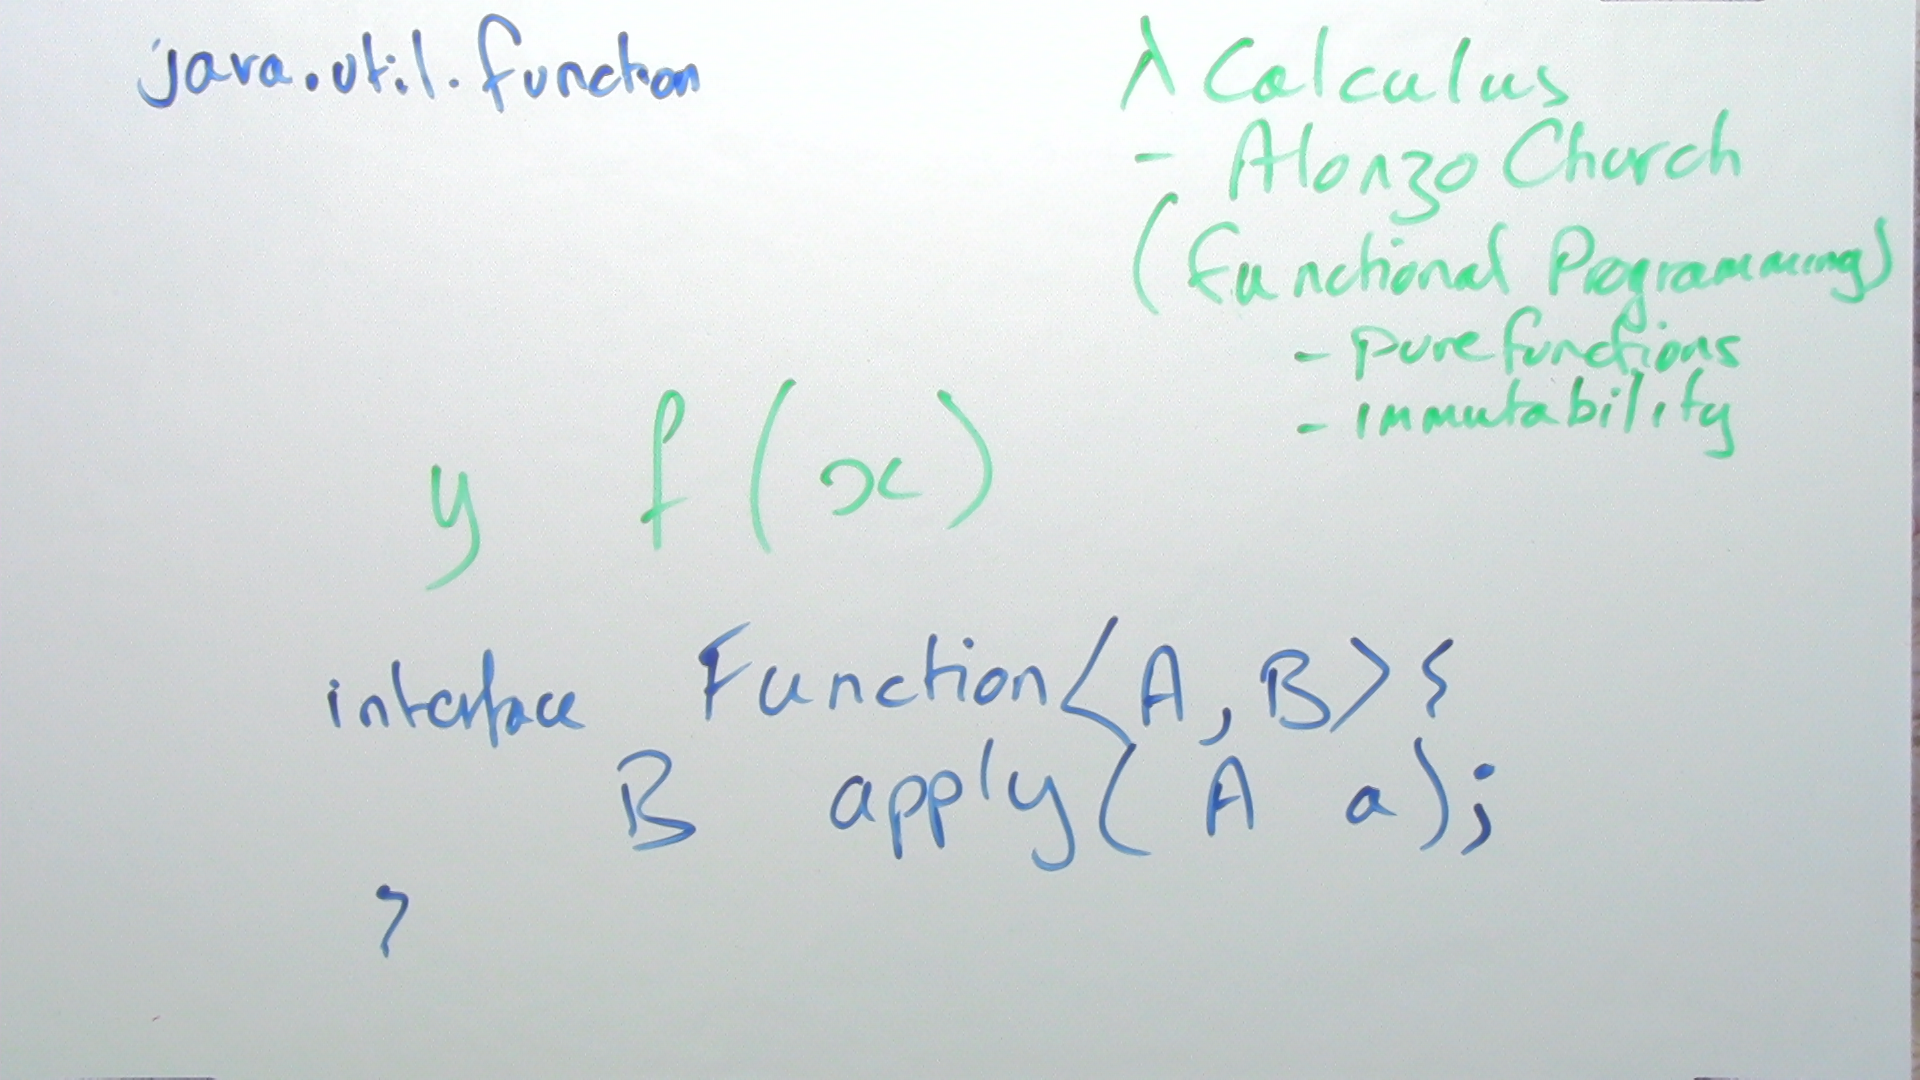 java.util.function
λ Calculus
- Alonzo Church
(Functional Programming)
- pure functions
- immutability
y f(x)
interface Function<A, B>{
B apply( A a);
}